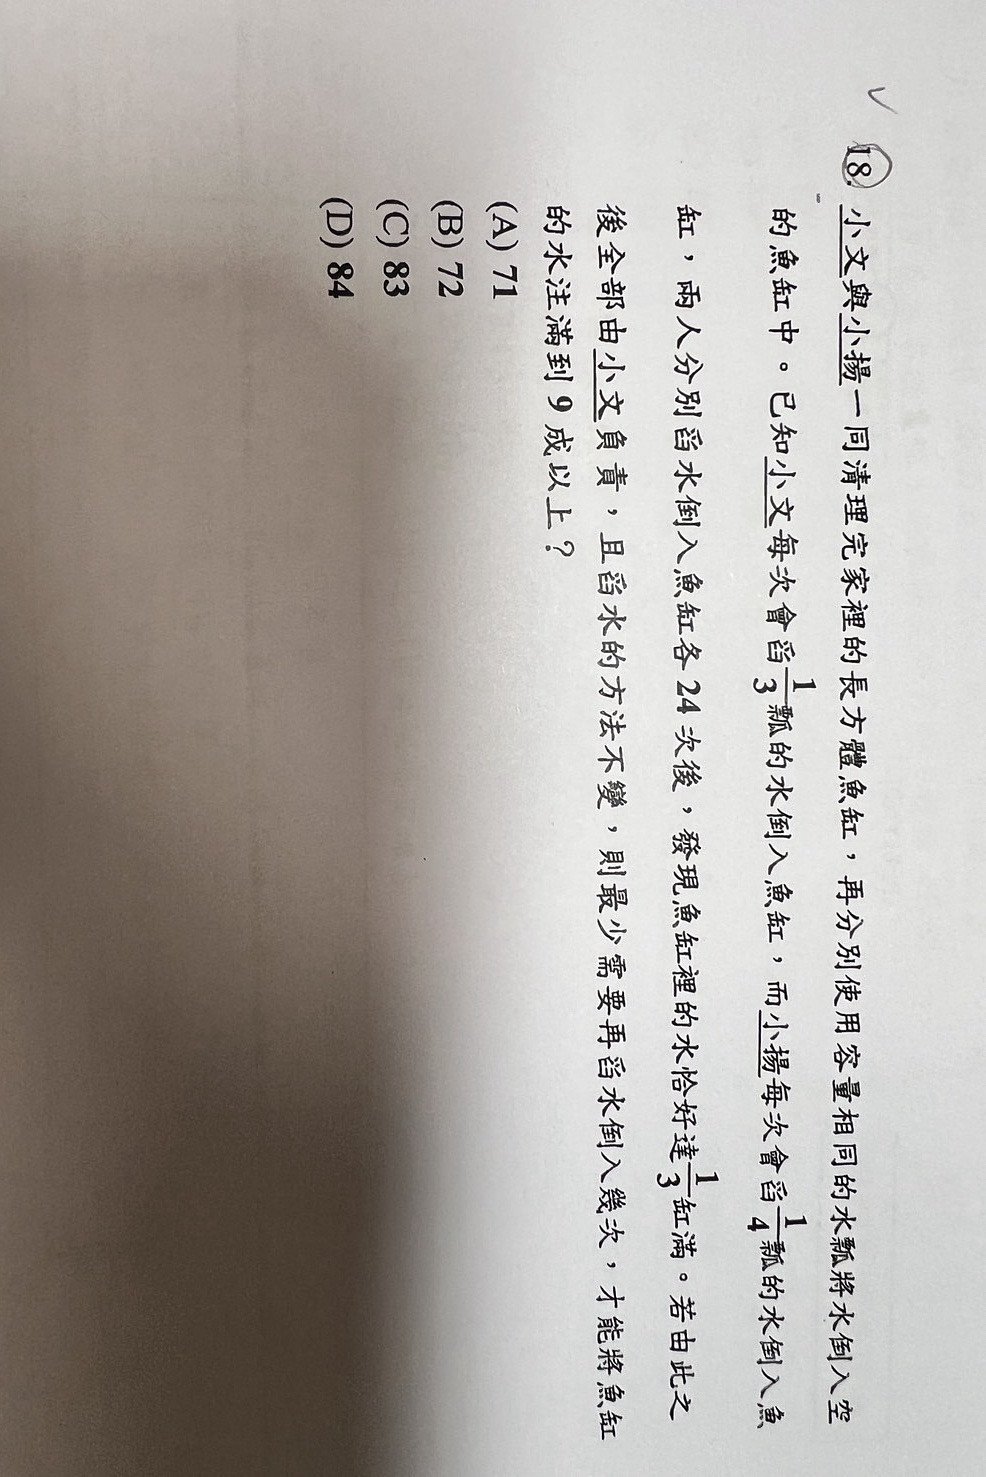 18. 小文與小揚一同清理完家裡的長方體魚缸，再分別使用容量相同的水瓢將水倒入空
的魚缸中。已知小文每次會舀1/3瓢的水倒入魚缸，而小揚每次會舀1/4瓢的水倒入魚
缸，兩人分別舀水倒入魚缸各24次後，發現魚缸裡的水恰好達1/3缸滿。若由此之
後全部由小文負責，且舀水的方法不變，則最少需要再舀水倒入幾次，才能將魚缸
的水注滿到9成以上？
(A) 71
(B) 72
(C) 83
(D) 84